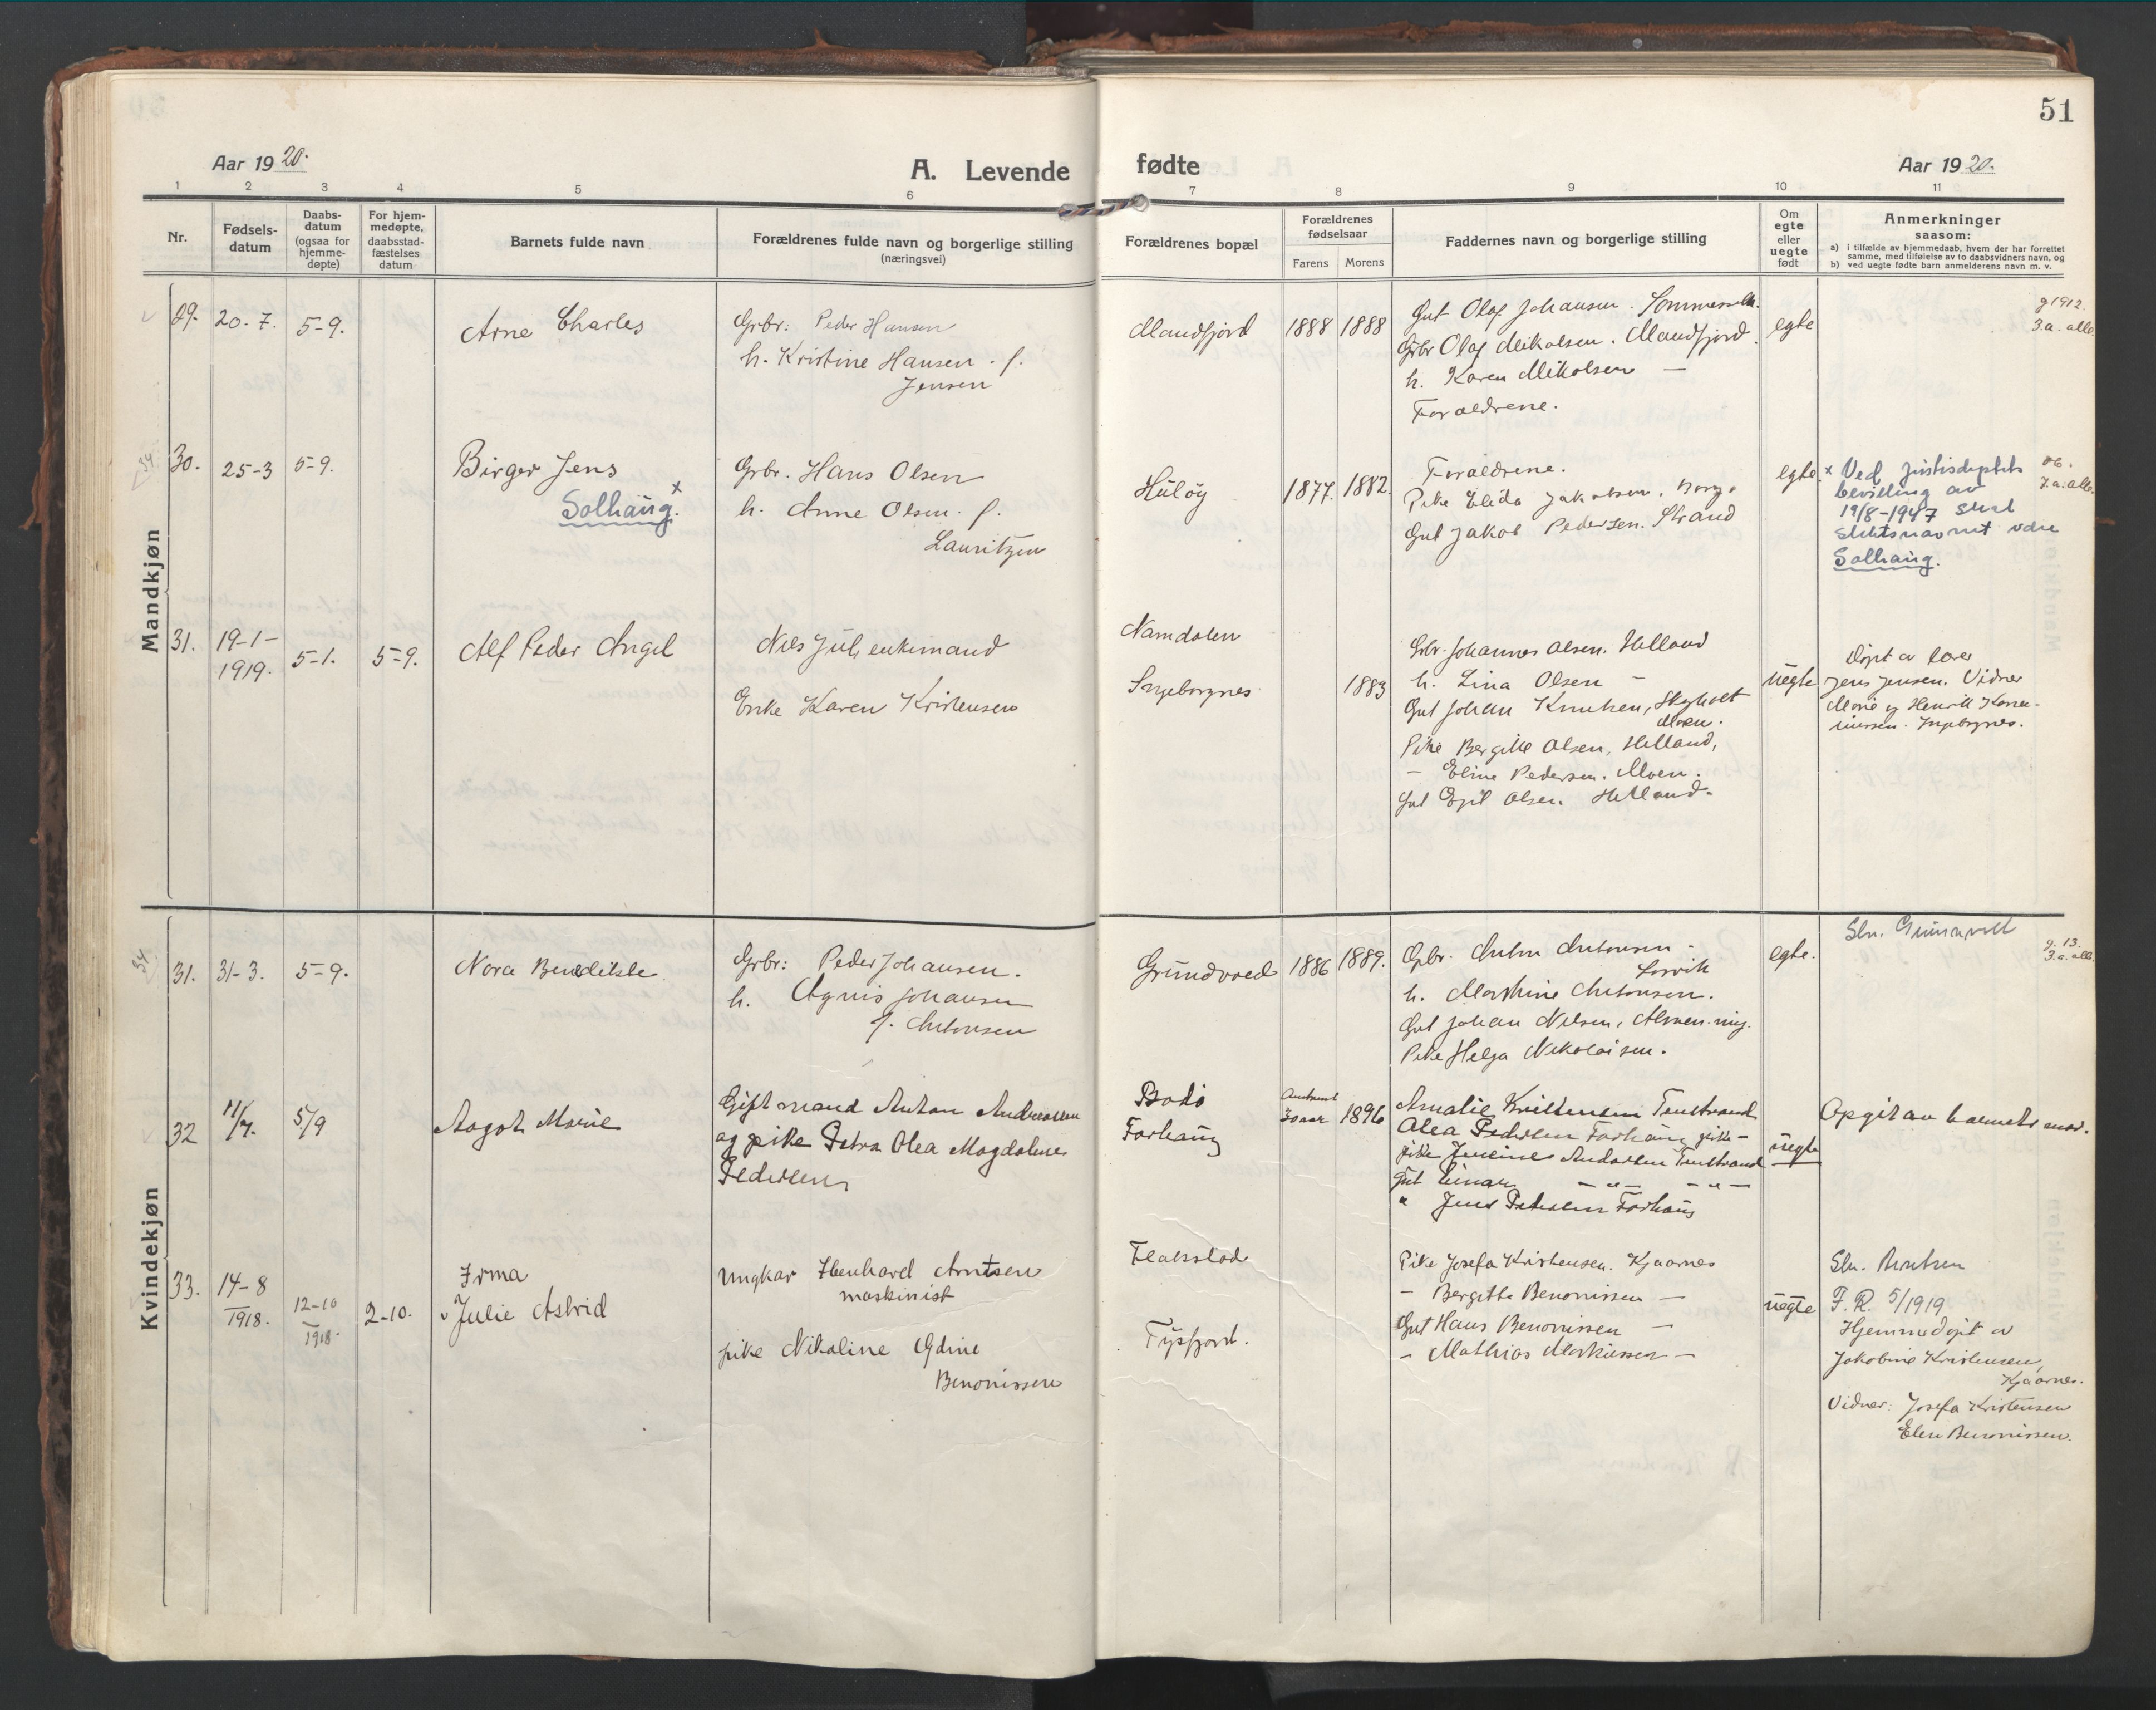 51
Aar 1920.
A. Levende fødte
Aar 1920.
1 2 3 4 5 6 7 8 9 10 11
Nr.
Fødsels-
datum
Daabs-
datum
(ogsaa for
hjemme-
døpte)
For hjem-
medøpte,
daabsstad-
fæstelses
datum
Barnets fulde navn
Forældrenes fulde navn og borgerlige stilling
(næringsvei)
Forældrenes bopæl
Forældrenes
fødselsaar
Farens Morens
Faddernes navn og borgerlige stilling
Om
egte
eller
uegte
født
Anmerkninger
saasom:
a) i tilfælde av hjemmedaab, hvem der har forrettet
samme, med tilføielse av to daabsvidners navn, og
b) ved uegte fødte barn anmelderens navn m. v.
Mandkjøn
29. 20-7. 5-9.
Arne Charles
Grbr: Peder Hansen
h. Kristine Hansen. f.
Jensen
Mandfjord
1888 1888
Gut Olaf Johansen.
Grbr Olaf Mikalsen. Mandfjord.
h. Karen Mikalsen —
Forældrene.
egte
g 1912.
3.a. alle.
30. 25-3 5-9.
Birger Jens
Solhaug. x
Grbr. Hans Olsen
h. Anne Olsen. f.
Lauritzen
Huløy
1877. 1882.
Forældrene.
Pike Elida Jakobsen.
Gut Jakob Pedersen. Strand
egte.
x Ved justisdeptets
bevilling av
19/8-1947 skal
slektsnavnet være
Solhaug.
31. 19-1-
1919. 5-1. 5-9.
Alf Peder Angel
Nils Juh enkemand
Enke Karen Kristensen
Namdalen
Ingeborgnes
1883
Grbr. Johannes Olsen. Helland
h. Lina Olsen —
Gut Johan Knutsen, Skogholt
Moen.
Pike Bergitte Olsen, Helland,
— Eline Pedersen. Moen.
Gut Egil Olsen. Helland.
uegte
Døpt av lærer
Jens Jensen. Vidner
Marie og Henrik
Ingeborgnes.
Kvindekjøn
31. 31-3. 5-9.
Nora Benedikte
Grbr: Peder Johansen.
h. Agnis Johansen
f. Antonsen
Grundvoed
1886 1889.
Gbr. Anton Antonsen —
Lorvik
h. Marthine Antonsen.
Gut Johan Nilsen,
Pike Helga Nikolaisen.
egte.
g. 13.
3.a. alle.
32 11/7. 5/9
Aagot Marie
Gift mand Anton Andreassen
og pike Petra Olea Magdalene
Pedersen
Bodø
Forhaug
30 aar 1896
Amalie Kristensen Tenstrand
Olea Pedersen Forhaug pike —
pike Jensine Andersen Tenstrand
gut Einar — " — — " —
" Jens Pedersen Forhaug
uegte
Opgit av barnets mor.
33. 14-8
1918. 12-10
1918. 2-10.
Irma
v Julie Astrid
Ungkar Ebenhard Arntsen
maskinist
pike Nikoline Odine
Benonissen
Flakstad
Tysfjord.
Pike Josefa Kristensen. Kjaarnes
— Bergitte Benonissen —
Gut Hans Benonissen —
— Mathias Markussen —
uegte
Sln. Arntsen
F. R. 5/1919
Hjemmedøpt av
Jakobine Kristensen,
Kjaarnes.
Vidner: Josefa Kristensen
Elen Benonissen.